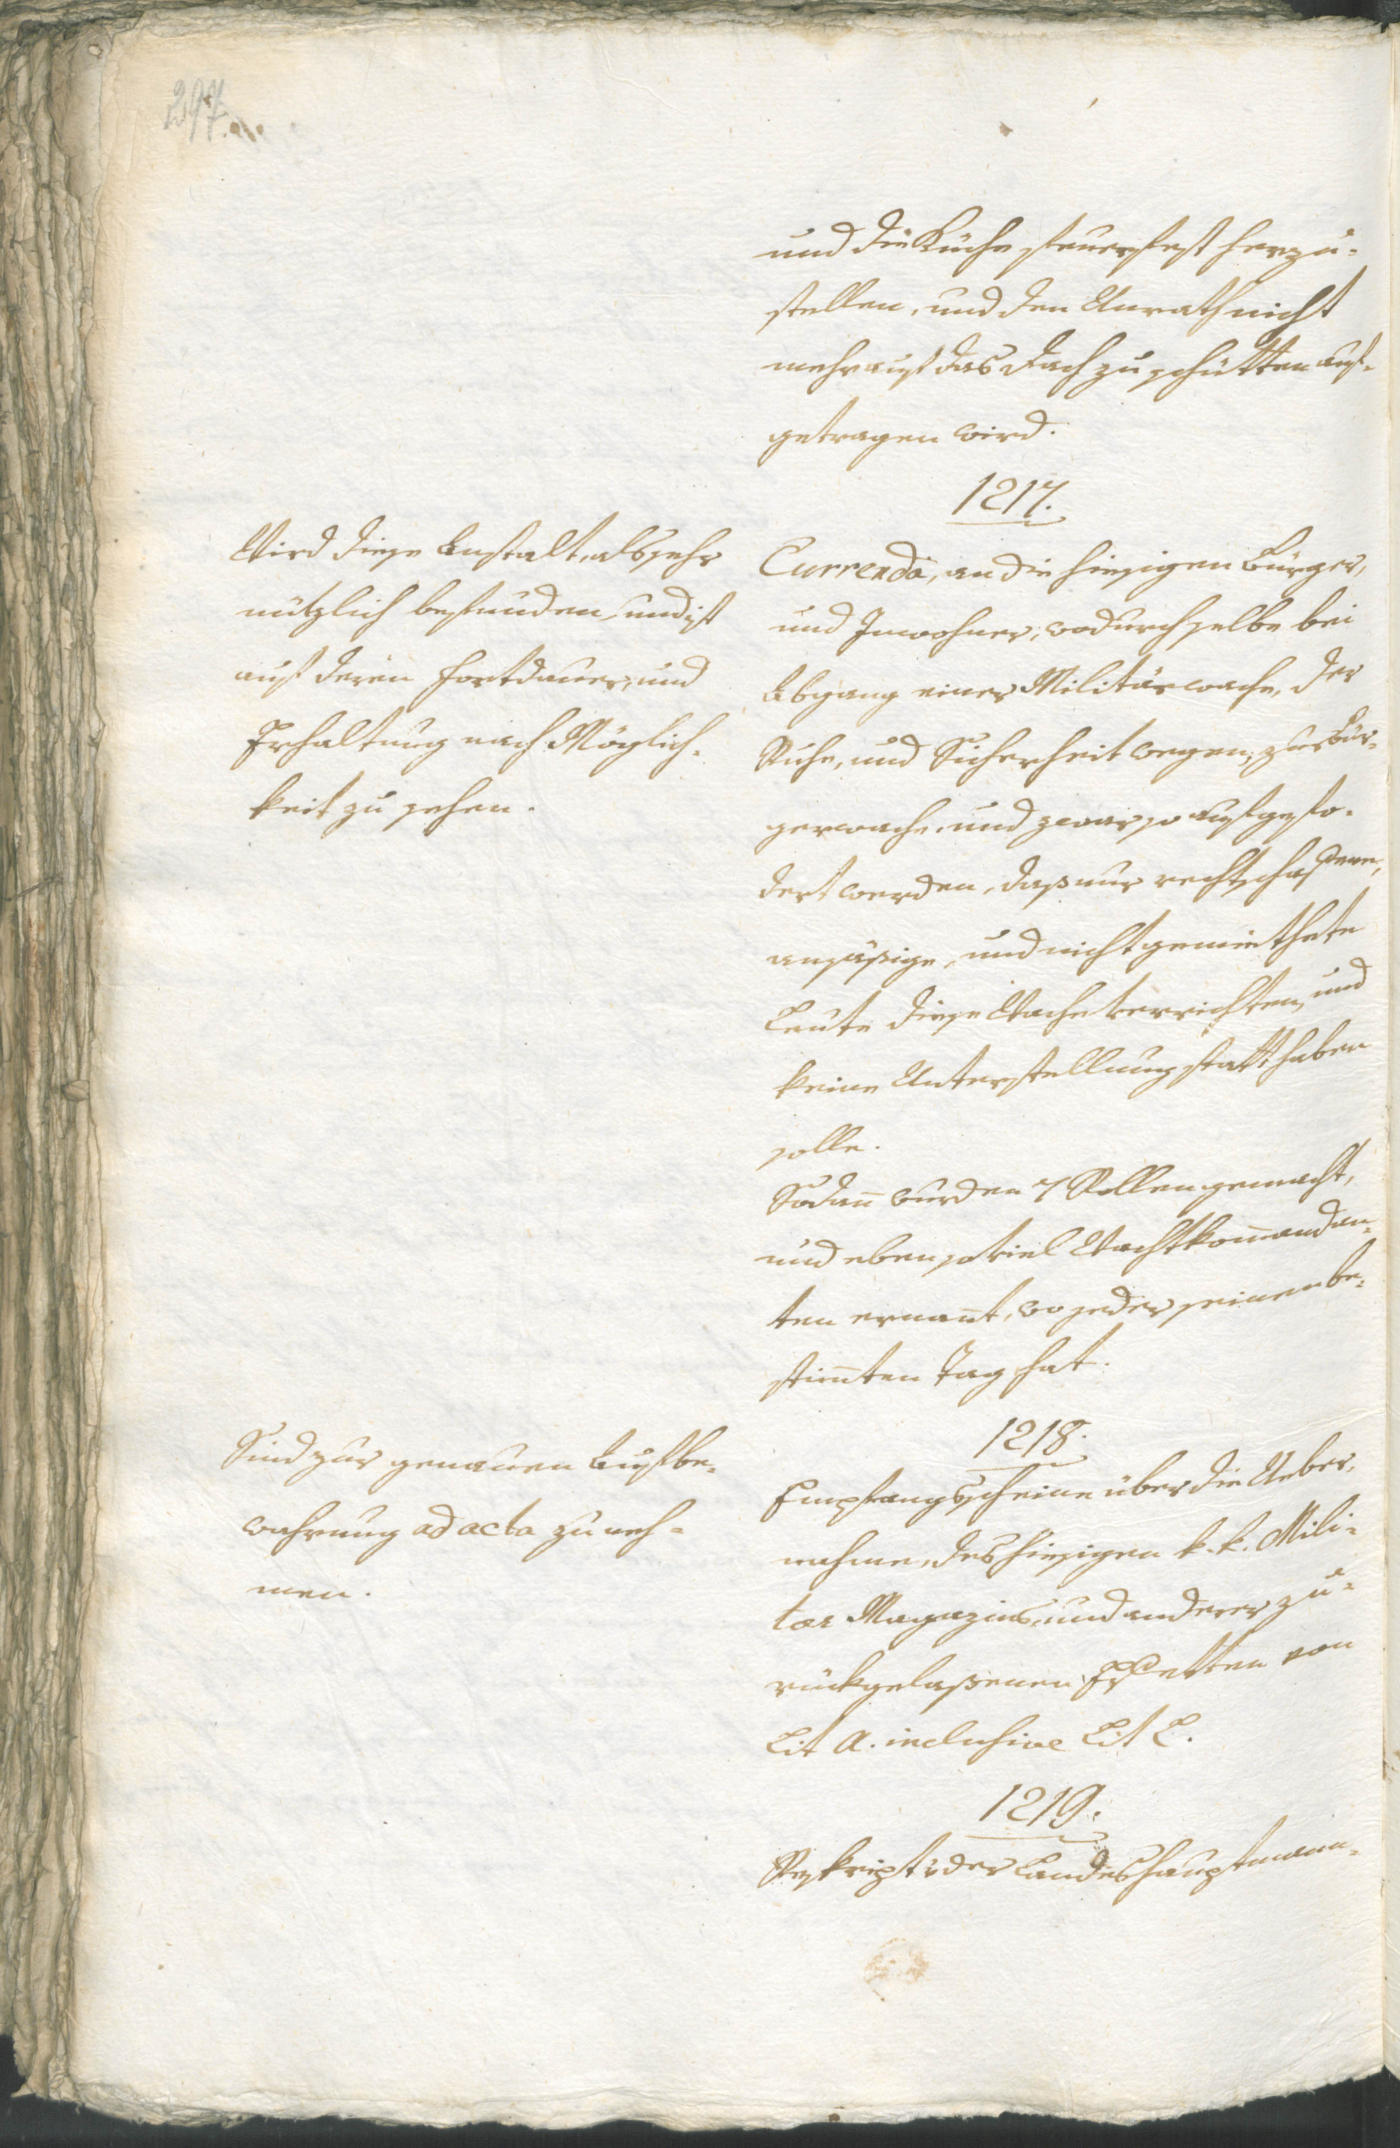 297.
und die Küche feuerfest herzu-
stellen, und den Unrath nicht
mehr auf das Dach zu schütten auf-
getragen wird.
1217.
Currenda, an die hiesigen Bürger,
und Inwohner, wodurch selbe bei
Abgang einer Militärwache, der
Ruhe, und Sicherheit wegen, zur Bür-
gerwache, und zwar so aufgefo-
dert werden, daß nur rechtschaffene,
ansäßige, und nicht gemiethete
Leute diese Wache verrichten, und
keine Unterstellung statt haben
solle.
Sodan̄ wurden 7 Rollen gemacht,
und eben so viel Wachtkom̄andan-
ten ernan̄t, wo jeder seinen be-
stim̄ten Tag hat.
Wird diese Anstalt, als sehr
nützlich befunden, und ist
auf deren Fortdauer, und
Erhaltung nach Möglich-
keit zu sehen.
1218.
Empfangsscheine über die Ueber-
nahme, des hiesigen k. k. Mili-
tär Magazins, und anderer zu-
rückgelaßenen Effetten von
Lit A. inclusive Lit L.
Sind zur genauen Aufbe-
wahrung ad acta zu neh-
men.
1219.
Reskript der Landeshauptmann-